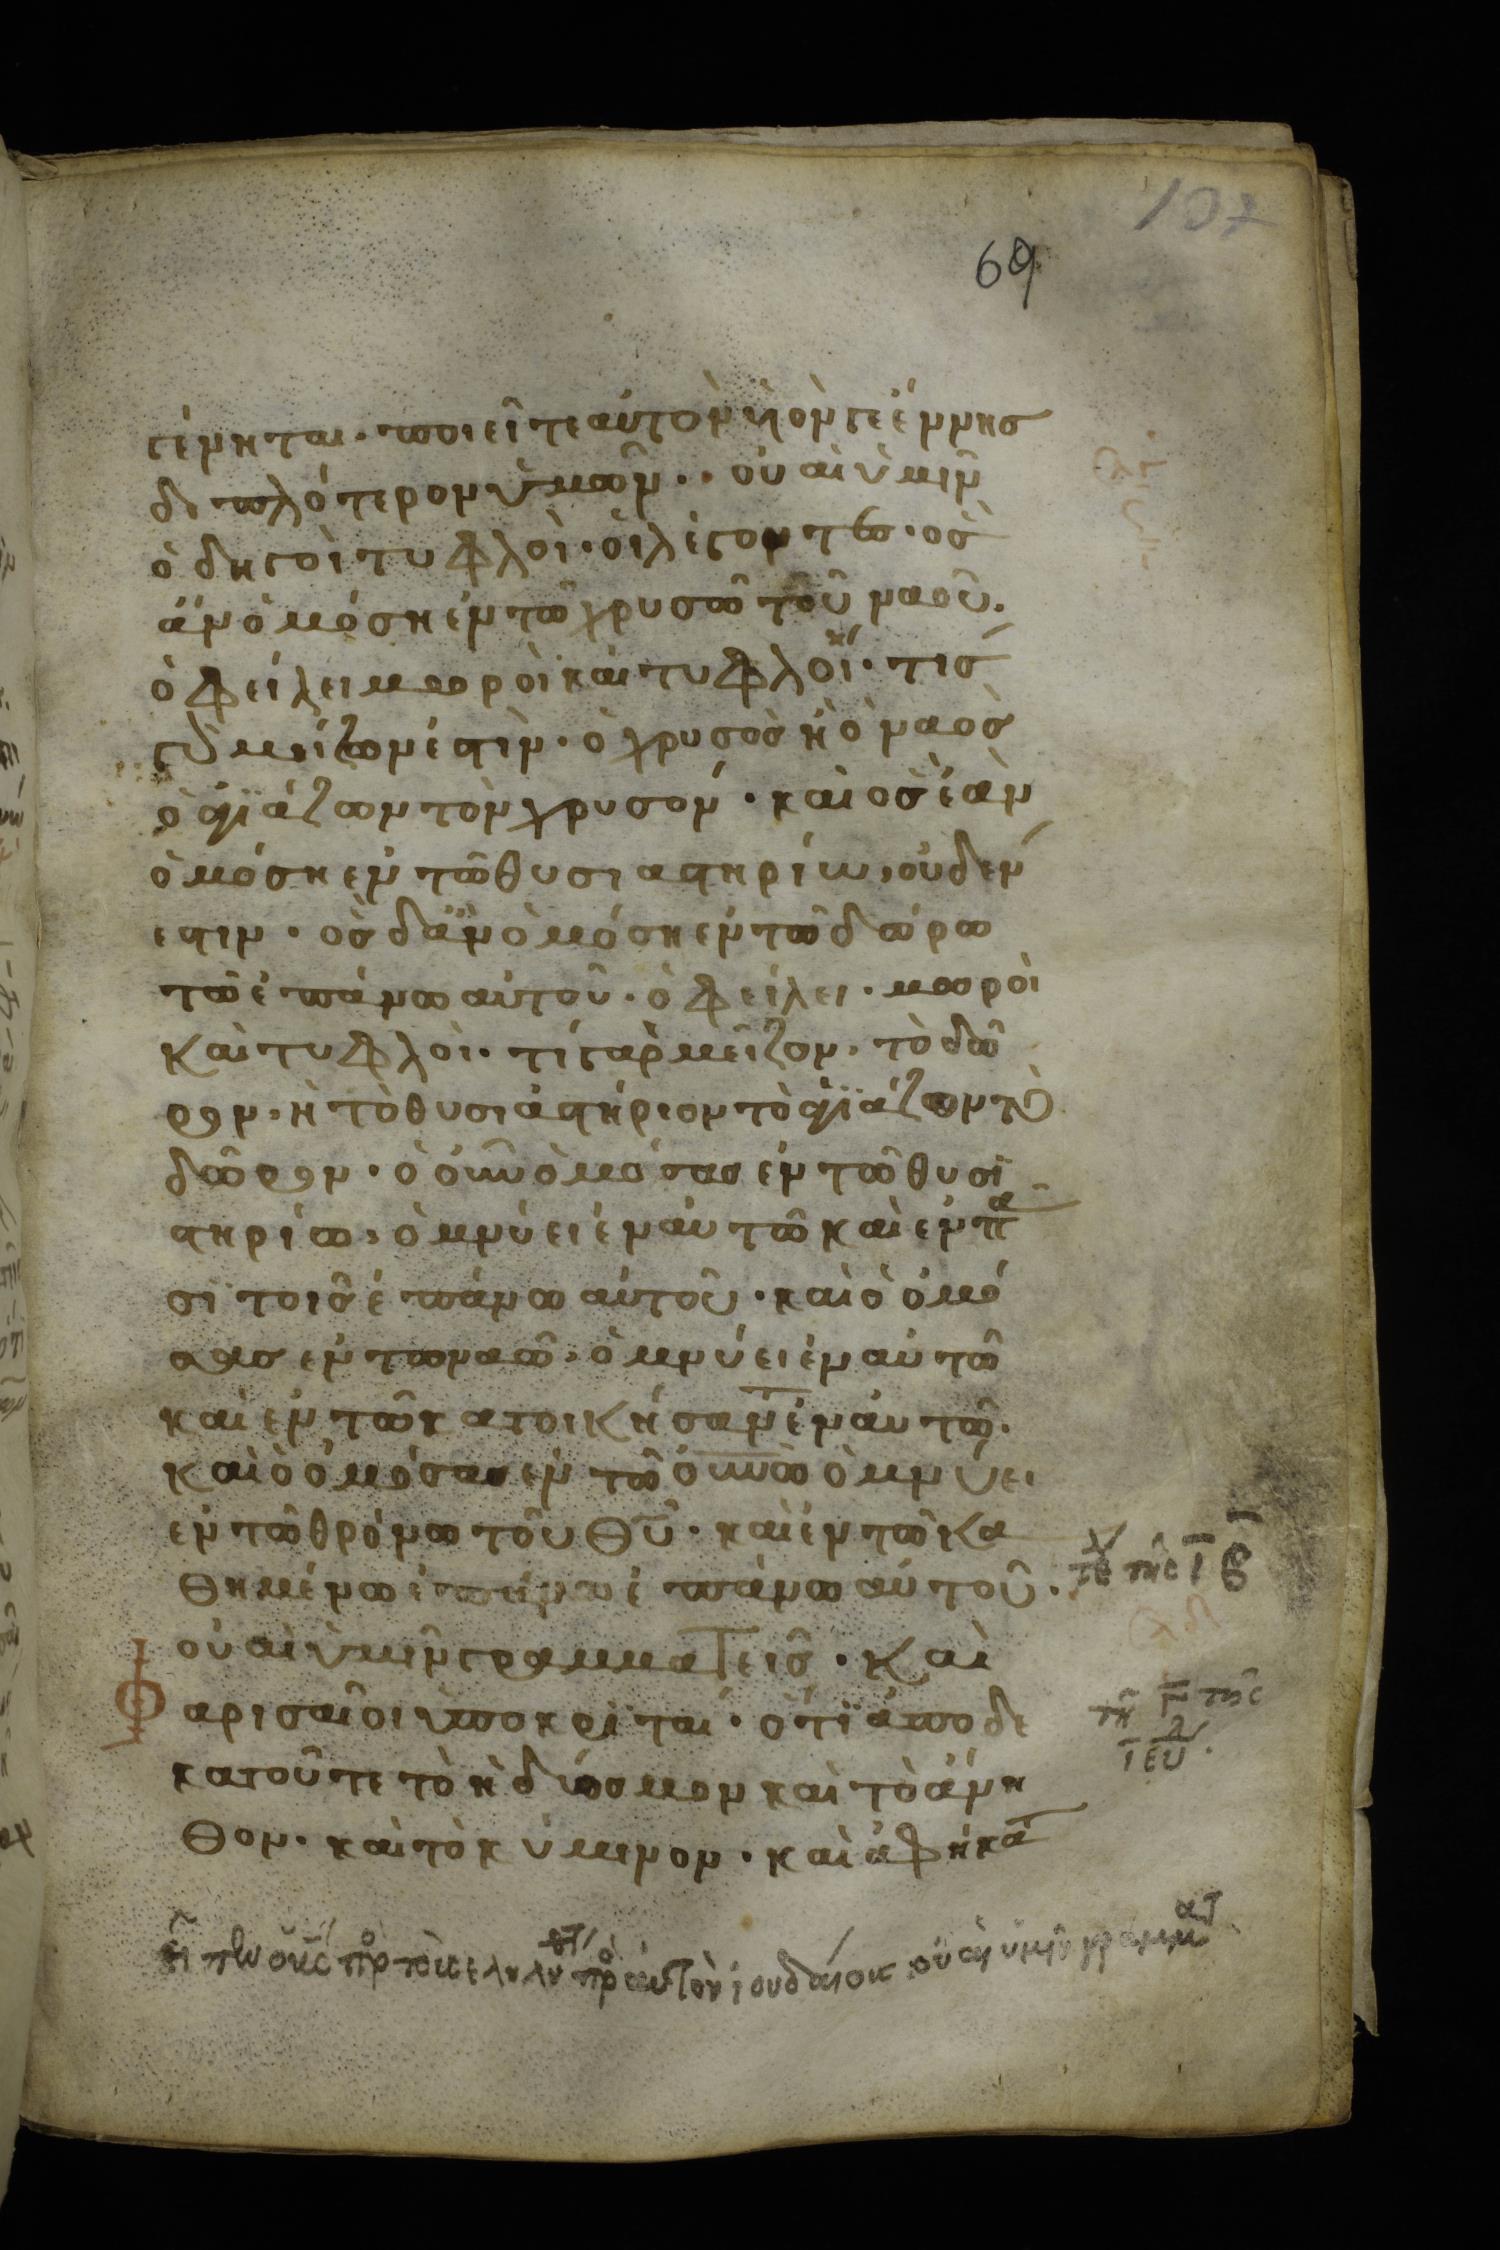 107
69
γένηται· ποιεῖτε αὐτὸν ὑὸν γεέννης
διπλότερον ὑμῶν·· οὐαὶ ὑμῖν
ὁδηγοὶ τυφλοὶ· οἱ λέγοντες· ὃς
ἂν ὀμόση ἐν τῶ χρυσῶ τοῦ ναοῦ.
ὀφείλει μωροὶ καὶ τυφλοὶ· τίς
γὰρ μείζων ἐστὶν· ὁ χρυσὸς ἢ ὁ ναὸς
ὁ ἁγϊάζων τὸν χρυσόν· καὶ ὃς ἐὰν
ὀμόση ἐν τῶ θυσιαστηρίω, οὐδέν
ἐστιν· ὃς δ ἂν ὀμόση ἐν τῶ δώρω
τῶ ἐπάνω αὐτοῦ· ὀφείλει· μωροὶ
καὶ τυφλοὶ· τί γὰρ μεῖζον· τὸ δῶ
ρον· ἢ τὸ θυσιαστήριον τὸ ἁγϊάζον τὸ
δῶρον· ὁ οὖν ὀμόσας ἐν τῶ θυσϊ
στηρίω, ὀμνύει ἐν αὐτῶ καὶ ἐν πᾶ
σϊ τοῖς ἐπάνω αὐτοῦ· καὶ ὁ ὀμό
σας ἐν τῶ ναῶ, ὀμνύει ἐν αὐτῶ
καὶ ἐν τῶ κατοικήσαν̅τ̅ ἐν αὐτῶ.
καὶ ὁ ὀμόσας ἐν τῶ ο̅υ̅ν̅ῶ ὀμνύει
ἐν τῶ θρόνω τοῦ Θ̅υ̅· καὶ ἐν τῶ κα
θημένω ἐπάνω ἐπάνω αὐτοῦ·
οὐαὶ ὑμῖν γραμματεῖς· καὶ
Φαρισαῖοι ὑποκρϊταί· ὅτϊ ἀποδε
κατοῦτε τὸ ἡδύοσμον καὶ τὸ ἄνη
θον· καὶ τὸ κύμινον· καὶ ἀφήκα̅τ̅
τῆς
τῆς